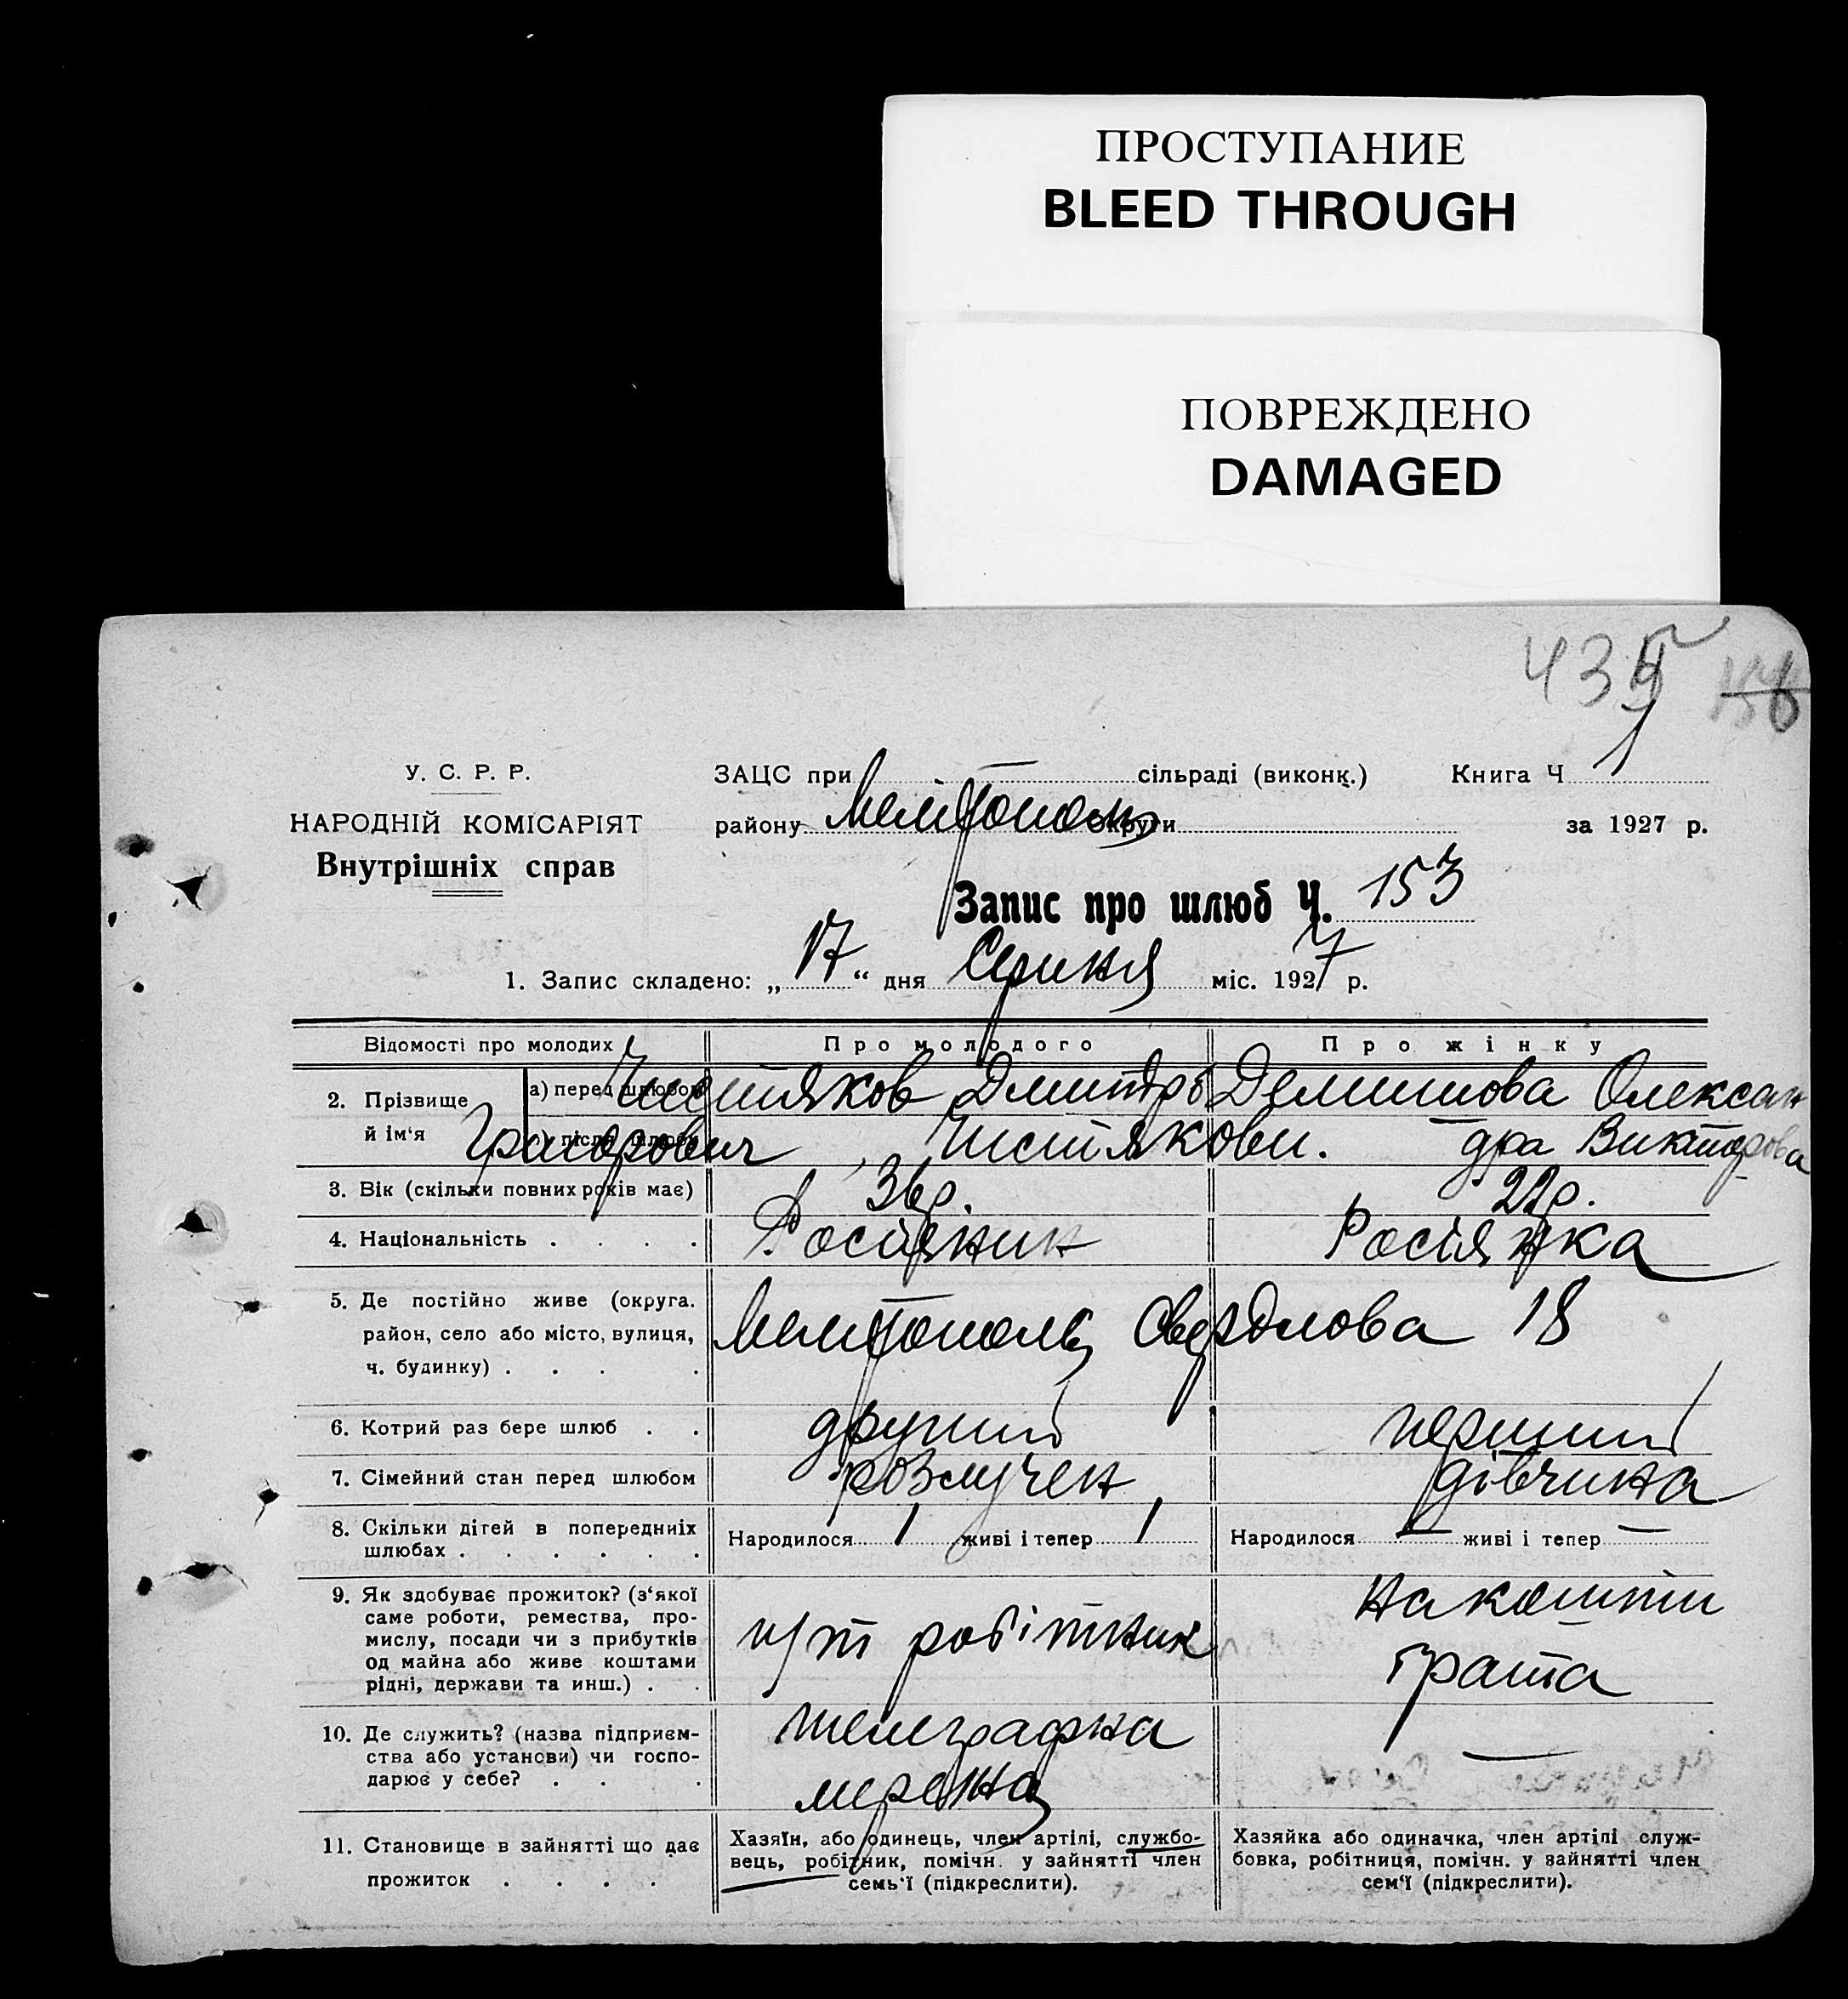 ПРОСТУПАНИЕ
BLEED THROUGH
ПОВРЕЖДЕНО
DAMAGED
435
У. С. Р. Р.
НАРОДНІЙ КОМІСАРІЯТ
Внутрішніх справ
ЗАЦС при — сільраді (виконк.) Книга Ч 1
району Мелітополь округи за 1927 р.
Запис про шлюб Ч. 153
1. Запис складено: „ 17 “ дня Серпня міс. 1927 р.
Відомості про молодих Про молодого Про жінку
2. Прізвище й ім‘я а) перед шлюбом Чистяков Дмитро Демишова Олексан
після шлюбу Григорович, Чистякови. дра Викторова
3. Вік (скільки повних років має) 36р. 22р.
4. Національність . . . . Росіяник Росіянка
5. Де постійно живе (округа.
район, село або місто, вулиця,
ч. будинку) . . . .
Мелітополь Свердлова 18
6. Котрий раз бере шлюб . . другий перший
7. Сімейний стан перед шлюбом розлучен дівчина
8. Скільки дітей в попередніх
шлюбах . . . . . .
Народилося 1 живі і тепер 1 Народилося — живі і тепер —
9. Як здобуває прожиток? (з‘якої
саме роботи, ремества, про-
мислу, посади чи з прибутків
од майна або живе коштами
рідні, держави та инш.) . .
п/т робітник
на кошти
брата
10. Де служить? (назва підприєм-
ства або установи) чи госпо-
дарює у себе? . . .
телеграфна
мережа
—
11. Становище в зайнятті що дає
прожиток . . . .
Хазяїн, або одинець, член артілі, службо-
вець, робітник, помічн. у зайнятті член
семь‘ї (підкреслити).
Хазяйка або одиначка, член артілі служ-
бовка, робітниця, помічн. у зайнятті член
сем‘ї (підкреслити).